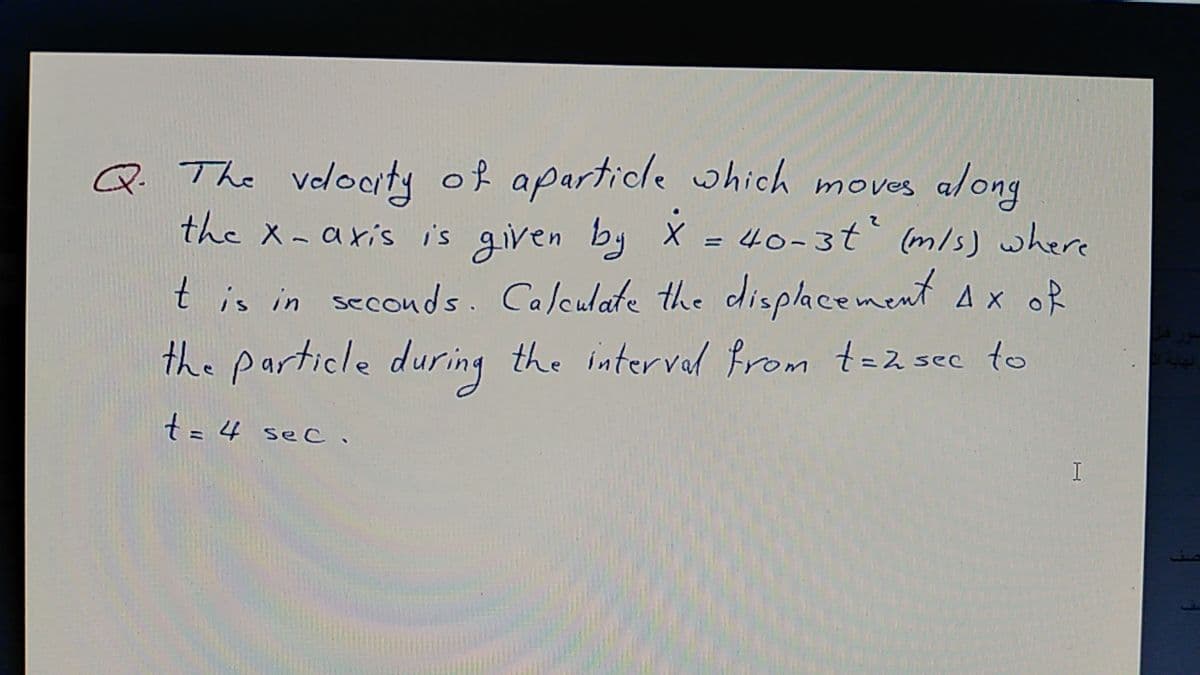 Q. The velocity of aparticle which moves along
the x-axis is given by ẋ = 40-3t² (m/s) where
t is in seconds. Calculate the displacement Δx of
the particle during the interval from t=2 sec to
t = 4 sec.